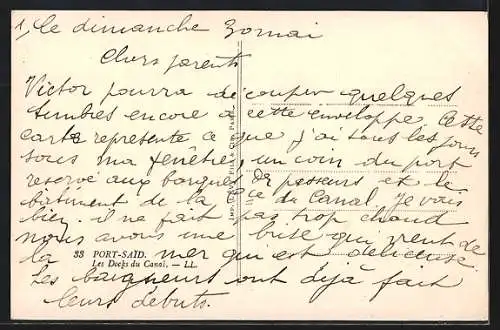 1, Le dimanche 30 mai
Chers parents
Victor pourra découper quelques
timbres encore à cette enveloppe. Cette
carte represente ce que j'ai tous les jours
sous ma fenêtre, un coin du port
reservé aux barques de passeurs et le
bâtiment de la Cie du Canal. Je vais
bien. il ne fait pas trop chaud
nous avons une brise qui vient de
la mer qui est délicieuse.
33 PORT-SAÏD.
Les Docks du Canal. — LL.
Les baigneurs ont déjà fait
leurs débuts.